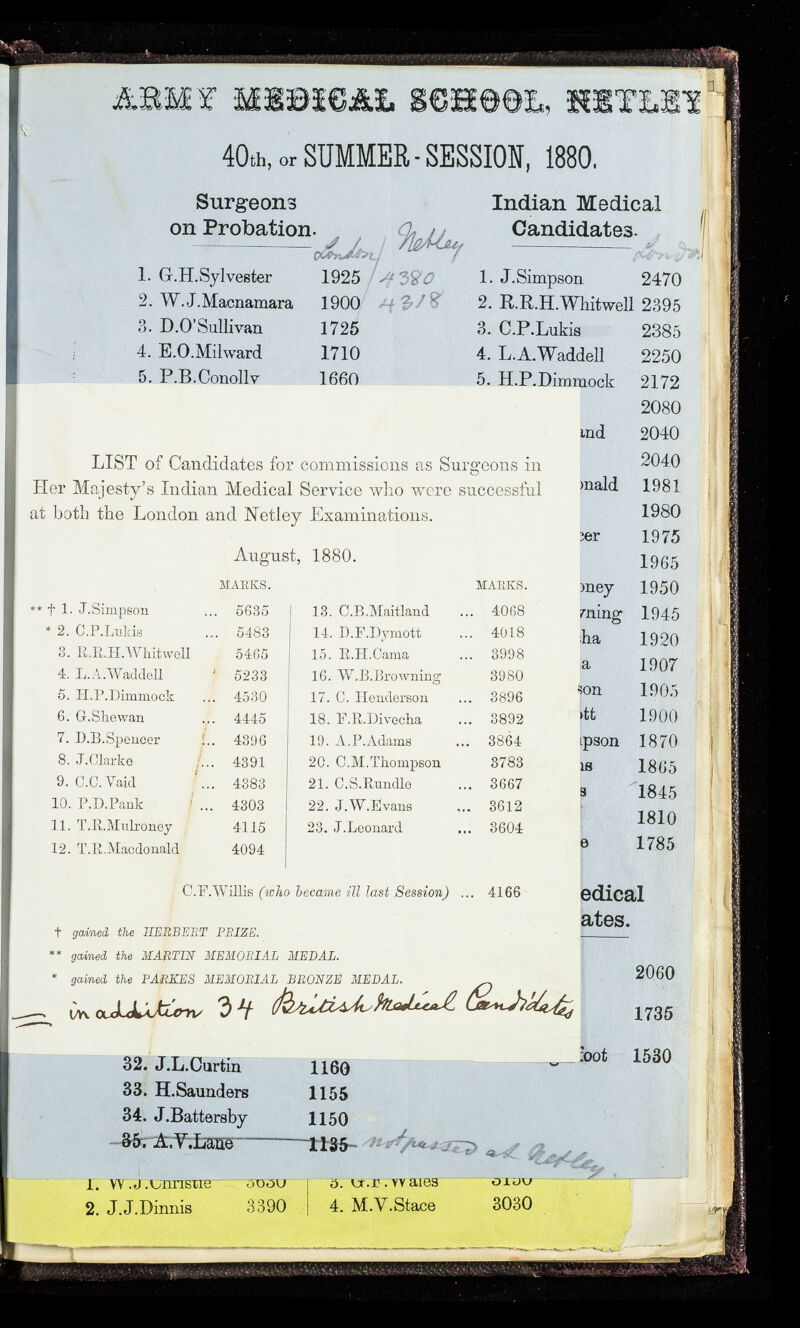 ARMY MEDICAL SCHOOL, NETLEY
40th, or SUMMER-SESSION, 1880.
Surgeons
on Probation.
London Netley
1. G.H.Sylvester 1925 4380
2. W.J.Macnamara 1900 4318
3. D.O'Sullivan 1725
4. E.O.Milward 1710
5. P.B.Conolly 1660
Indian Medical
Candidates.
London
1. J.Simpson 2470
2. R.R.H.Whitwell 2395
3. C.P.Lukis 2385
4. L.A.Waddell 2250
5. H.P.Dimmock 2172
2080
and 2040
2040
onald 1981
1980
cer 1975
1965
oney 1950
ning 1945
ha 1920
a 1907
son 1905
ott 1900
pson 1870
as 1865
1845
1810
e 1785
edical
ates.
2060
1735
foot 1530
LIST of Candidates for commissions as Surgeons in
Her Majesty's Indian Medical Service who were successful
at both the London and Netley Examinations.
August, 1880.
MARKS.
** † 1. J.Simpson ... 5635
* 2. C.P.Lukis ... 5483
3. R.R.H.Whitwell 5465
4. L.A.Waddell 5233
5. H.P.Dimmock ... 4530
6. G.Shewan ... 4445
7. D.B.Spencer ... 4396
8. J.Clarke ... 4391
9. C.C.Vaid ... 4383
10. P.D.Pank ... 4303
11. T.R.Mulroney 4115
12. T.R.Macdonald 4094
MARKS.
13. C.B.Maitland ... 4068
14. D.F.Dymott ... 4018
15. R.H.Cama ... 3998
16. W.B.Browning 3980
17. C. Henderson ... 3896
18. F.R.Divecha ... 3892
19. A.P.Adams ... 3864
20. C.M.Thompson 3783
21. C.S.Rundle ... 3667
22. J.W.Evans ... 3612
23. J.Leonard ... 3604
C.F.Willis (who became ill last Session) ... 4166
† gained the HERBERT PRIZE.
** gained the MARTIN MEMORIAL MEDAL.
* gained the PARKES MEMORIAL BRONZE MEDAL.
= in addition 34 British Medical Candidates
32. J.L.Curtin 1160
33. H.Saunders 1155
34. J.Battersby 1150
35. A.V.Lane 1135 not passed at Netley.
1. W.J.Christie
2. J.J.Dinnis 3390
3. G.F.Wales
4. M.V.Stace 3030